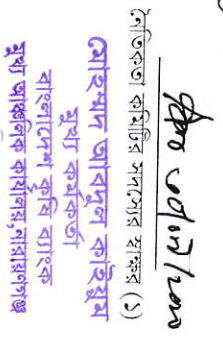 নৈতিকতা কমিটির সদস্যের স্বাক্ষর (১)
মোহাম্মদ আবদুল কাইয়ুম
মুখ্য কর্মকর্তা
বাংলাদেশ কৃষি ব্যাংক
মুখ্য আঞ্চলিক কার্যালয়,নারায়ণগঞ্জ